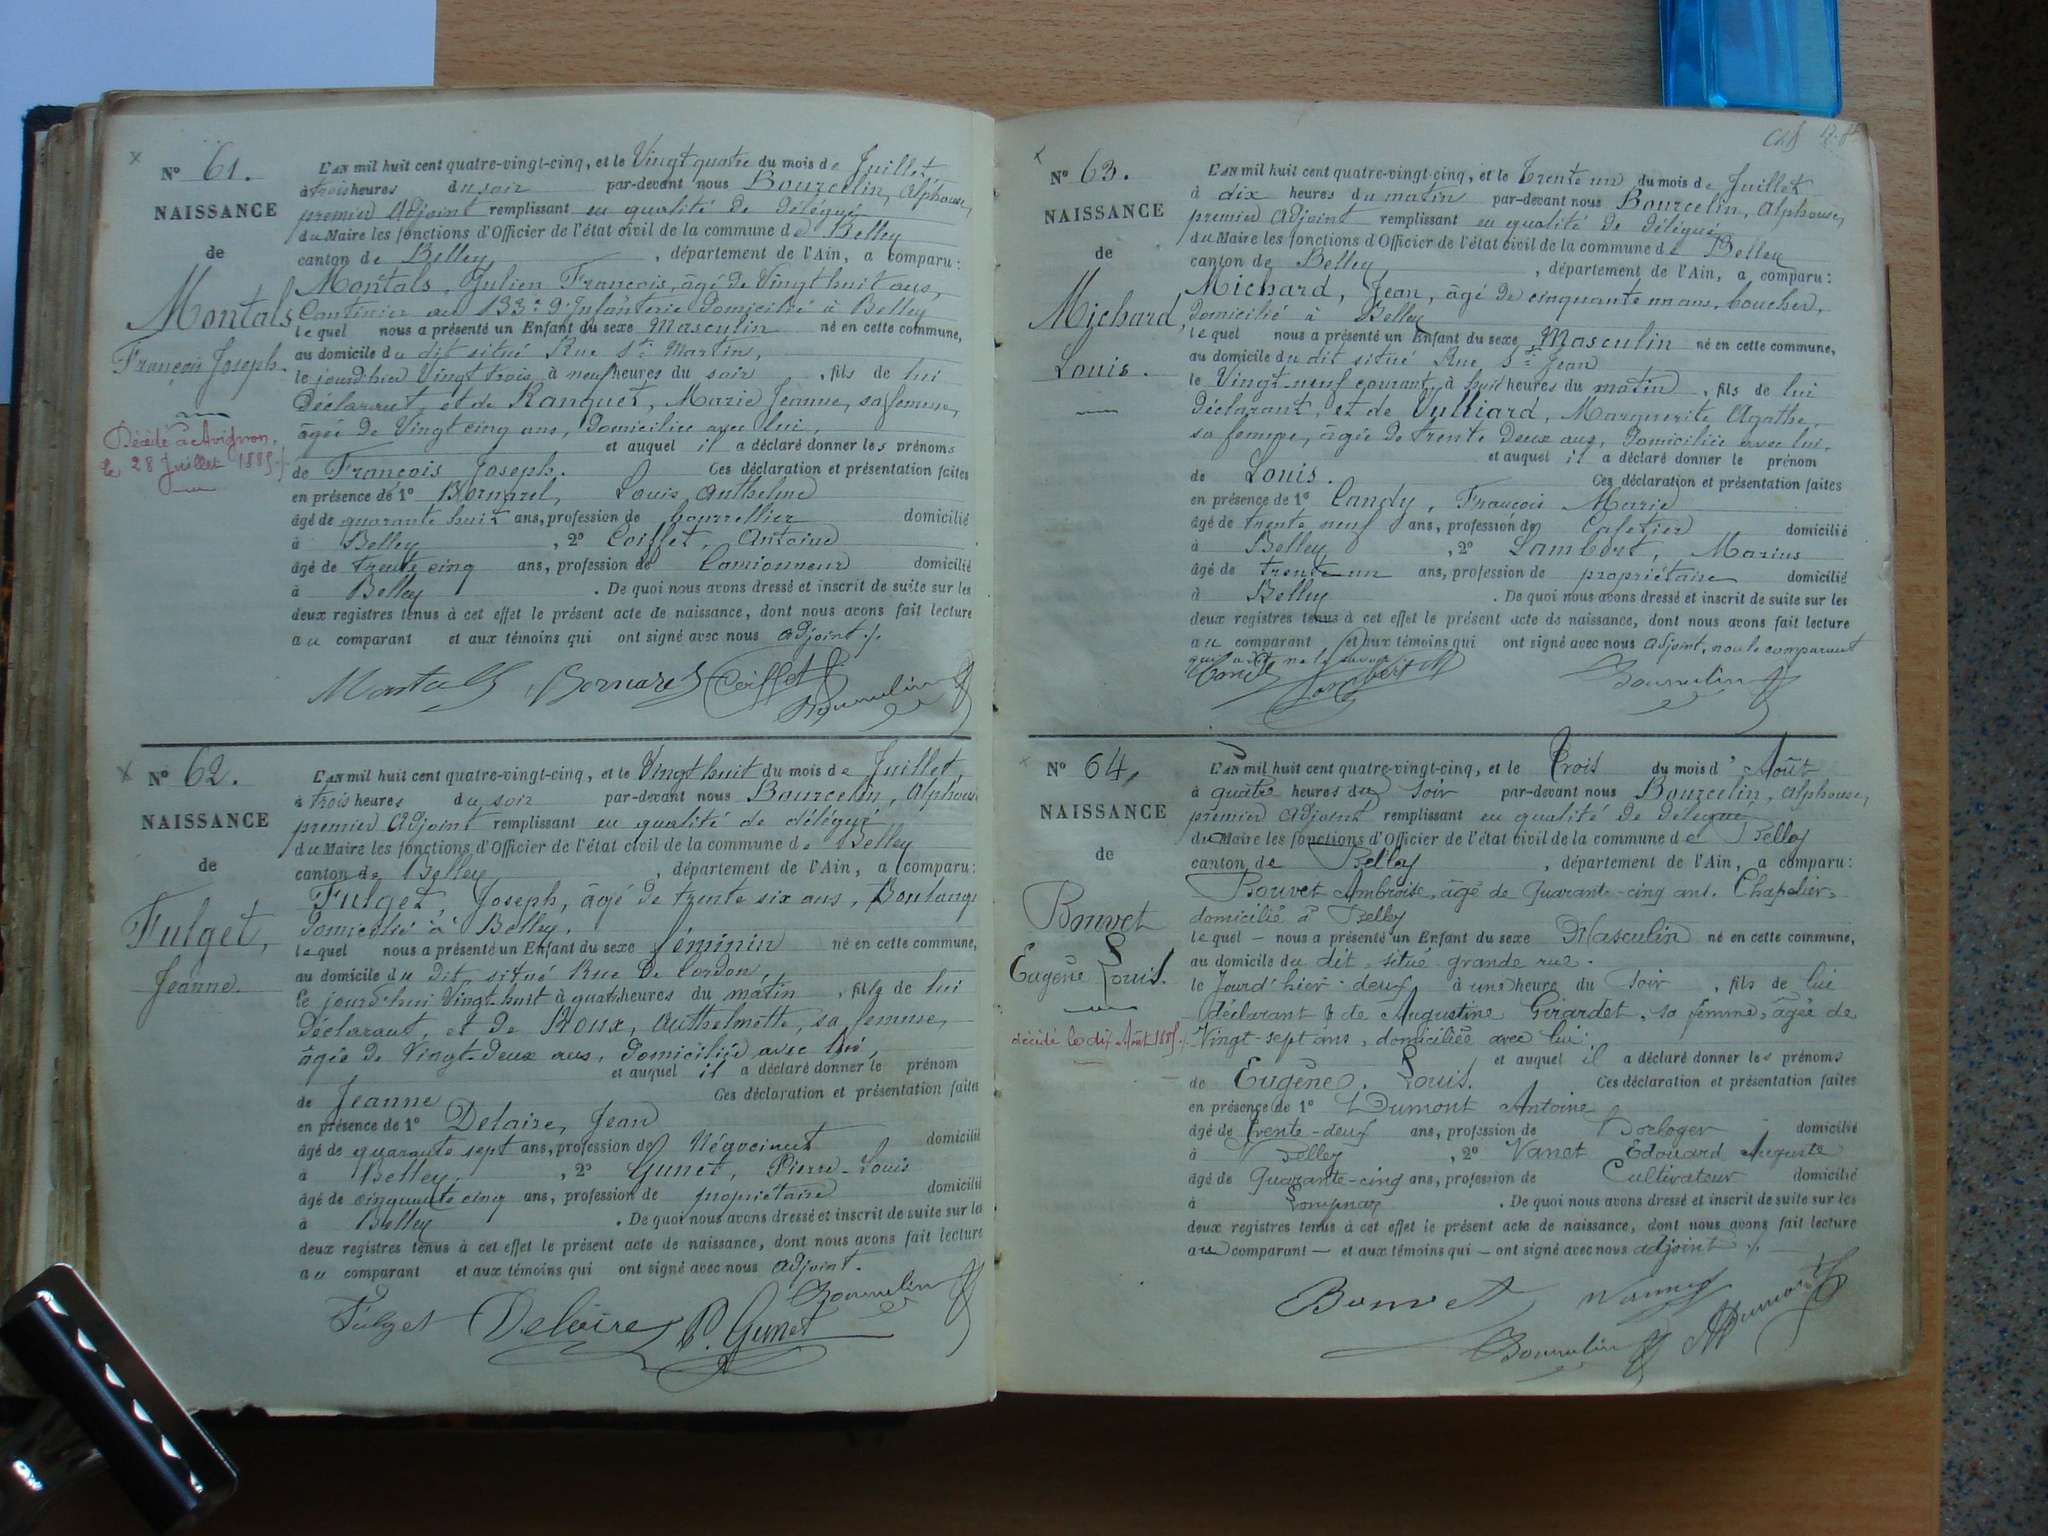 N° 61.
NAISSANCE
de
Montals
François Joseph.
Décédé à Avignon,
le 28 Juillet 1885 ./.
L'AN mil huit cent quatre-vingt-cinq, et le Vingt quatre du mois de Juillet,
à trois heures du soir par-devant nous Bourcelin, Alphonse,
premier Adjoint remplissant en qualité de délégué
du Maire les fonctions d'Officier de l'état civil de la commune de Belley
canton de Belley, département de l'Ain, a comparu:
Montals, Julien François, âgé de Vingt huit ans,
Cantinier au 133e d'Infanterie domicilié à Belley
lequel nous a présenté un Enfant du sexe Masculin né en cette commune,
au domicile du dit situé Rue St Martin,
le jourd'hier Vingt trois à neuf heures du soir, fils de lui
déclarant, et de Ranquet, Marie Jeanne, sa femme,
âgée de Vingt cinq ans, domiciliée avec lui,
et auquel il a déclaré donner les prénoms
de François Joseph. Ces déclaration et présentation faites
en présence de 1° Bornarel, Louis Anthelme
âgé de quarante huit ans, profession de bourrellier domicilié
à Belley, 2° Coiffet, Antoine
âgé de trente cinq ans, profession de Camionneur domicilié
à Belley. De quoi nous avons dressé et inscrit de suite sur les
deux registres tenus à cet effet le présent acte de naissance, dont nous avons fait lecture
au comparant et aux témoins qui ont signé avec nous adjoint ./.
Montals Bornarel Coiffet
Bourcelin
N° 62.
NAISSANCE
de
Fulget,
Jeanne.
L'AN mil huit cent quatre-vingt-cinq, et le Vingt huit du mois de Juillet,
à trois heures du soir par-devant nous Bourcelin, Alphonse
premier Adjoint remplissant en qualité de délégué
du Maire les fonctions d'Officier de l'état civil de la commune de Belley
canton de Belley, département de l'Ain, a comparu:
Fulget Joseph, âgé de trente six ans, Boulang
domicilié à Belley,
lequel nous a présenté un Enfant du sexe féminin né en cette commune,
au domicile du dit, situé Rue de Cordon,
le jourd'hui Vingt huit à quatre heures du matin, fille de lui
déclarant, et de Roux, Anthelmette, sa femme,
âgée de Vingt-deux ans, domiciliée avec lui,
et auquel il a déclaré donner le prénom
de Jeanne Ces déclaration et présentation faites
en présence de 1° Delaire, Jean
âgé de quarante sept ans, profession de Négociant domicilié
à Belley, 2° Gunet, Pierre-Louis
âgé de cinquante cinq ans, profession de propriétaire domicilié
à Belley. De quoi nous avons dressé et inscrit de suite sur les
deux registres tenus à cet effet le présent acte de naissance, dont nous avons fait lecture
au comparant et aux témoins qui ont signé avec nous adjoint.
Fulget Delaire P. Gunet Bourcelin
N° 63.
NAISSANCE
de
Michard,
Louis.
L'AN mil huit cent quatre-vingt-cinq, et le Trente un du mois de Juillet
à dix heures du matin par-devant nous Bourcelin, Alphonse,
premier Adjoint remplissant en qualité de délégué
du Maire les fonctions d'Officier de l'état civil de la commune de Belley
canton de Belley, département de l'Ain, a comparu:
Michard, Jean, âgé de cinquante un ans, boucher,
domicilié à Belley
lequel nous a présenté un Enfant du sexe Masculin né en cette commune,
au domicile du dit situé Rue St Jean
le Vingt-neuf courant, à huit heures du matin, fils de lui
déclarant, et de Vulliard, Marguerite Agathe,
sa femme, âgée de trente deux ans, domiciliée avec lui,
et auquel il a déclaré donner le prénom
de Louis. Ces déclaration et présentation faites
en présence de 1° Candy, François Marie
âgé de trente neuf ans, profession de Cafetier domicilié
à Belley, 2° Lambert, Marius
âgé de trente un ans, profession de propriétaire domicilié
à Belley. De quoi nous avons dressé et inscrit de suite sur les
deux registres tenus à cet effet le présent acte de naissance, dont nous avons fait lecture
au comparant et aux témoins qui ont signé avec nous adjoint, non le comparant
qui a dit ne le savoir
Candy Lambert M Bourcelin
N° 64,
NAISSANCE
de
Bouvet
Eugène Louis.
décédé le dix Août 1885 ./.
L'AN mil huit cent quatre-vingt-cinq, et le Trois du mois d'Août
à quatre heures du soir par-devant nous Bourcelin, Alphonse,
premier Adjoint remplissant en qualité de délégué
du Maire les fonctions d'Officier de l'état civil de la commune de Belley
canton de Belley, département de l'Ain, a comparu:
Bouvet Ambroise, âgé de Quarante-cinq ans. Chapelier,
domicilié à Belley
lequel – nous a présenté un Enfant du sexe Masculin né en cette commune,
au domicile du dit, situé grande rue.
le Jourd'hier deux à une heure du Soir, fils de lui
déclarant & de Augustine Girardet, sa femme, âgée de
Vingt-sept ans, domiciliée avec lui.
et auquel il a déclaré donner les prénoms
de Eugène, Louis. Ces déclaration et présentation faites
en présence de 1° Dumont Antoine
âgé de trente-deux ans, profession de Horloger domicilié
à Belley, 2° Vanet Edouard Auguste
âgé de Quarante-cinq ans, profession de Cultivateur domicilié
à . De quoi nous avons dressé et inscrit de suite sur les
deux registres tenus à cet effet le présent acte de naissance, dont nous avons fait lecture
au comparant – et aux témoins qui – ont signé avec nous adjoint ./.
Bouvet
Bourcelin Dumont